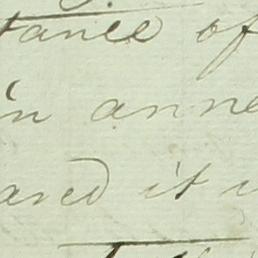 tance of
in anne
ared it